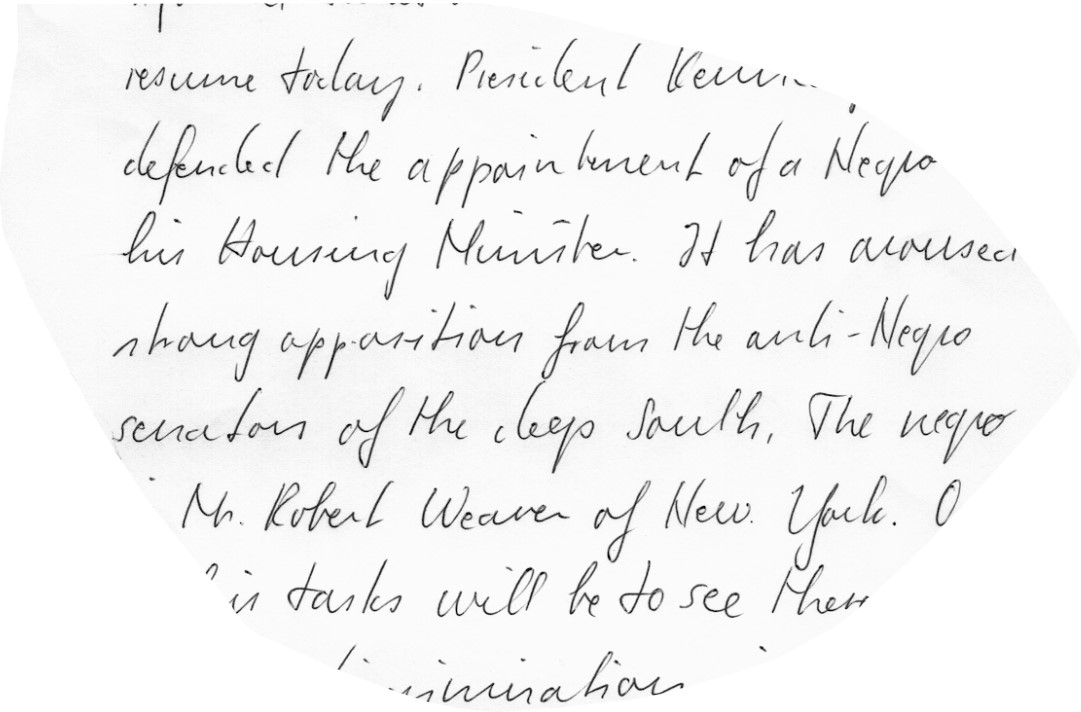 resume today. President
defended the appointment of a Negro
his Housing Minister. It has aroused
strong opposition from the anti-Negro
senators of the deep South. The negro
Mr. Robert Weaver of New York.
his tasks will be to see there